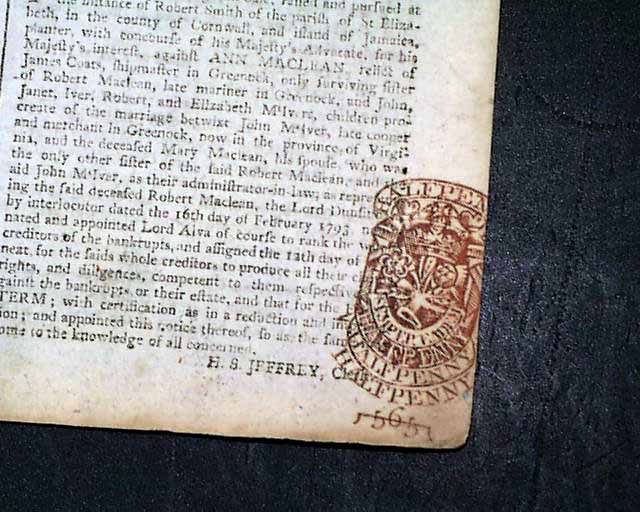 the instance of Robert Smith of the parish of St Eliza-
beth, in the county of Cornwall, and island of Jamaica,
planter, with concourse of his Majesty's Advocate, for his
Majesty's interest, against ANN MACLEAN, relict of
James Coats, shipmaster in Greenock, only surviving sister
of Robert Maclean, late mariner in Greenock, and John,
Janet, Iver, Robert, and Elizabeth McIvers, children pro-
create of the marriage betwixt John McIver, late cooper
and merchant in Greenock, now in the province of Virgi-
nia, and the deceased Mary Maclean, his spouse, who was
the only other sister of the said Robert Maclean, and
said John McIver, as their administrator-in-law; as repre
ing the said deceased Robert Maclean, the Lord Dunsin
by interlocutor dated the 16th day of February 1793
nated and appointed Lord Alva of course to rank the
creditors of the bankrupts, and assigned the 12th day of
next, for the saids whole creditors to produce all their
rights, and diligences, competent to them respectiv
gainst the bankrupts, or their estate, and that for the
TERM; with certification as in a reduction and
ion; and appointed this notice thereof, so as the same
ome to the knowledge of all concerned.
H. S. JEFFREY, Cl
HALFPEN
HALFPENNY
HALFPENNY
HALFPENNY
1565